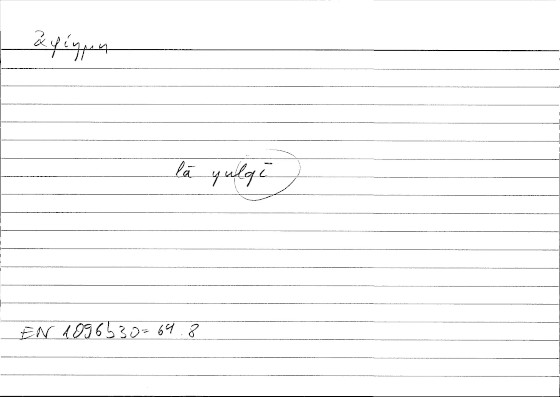 ἀφίημι
lā yulqī
EN 1096b30 = 64.8